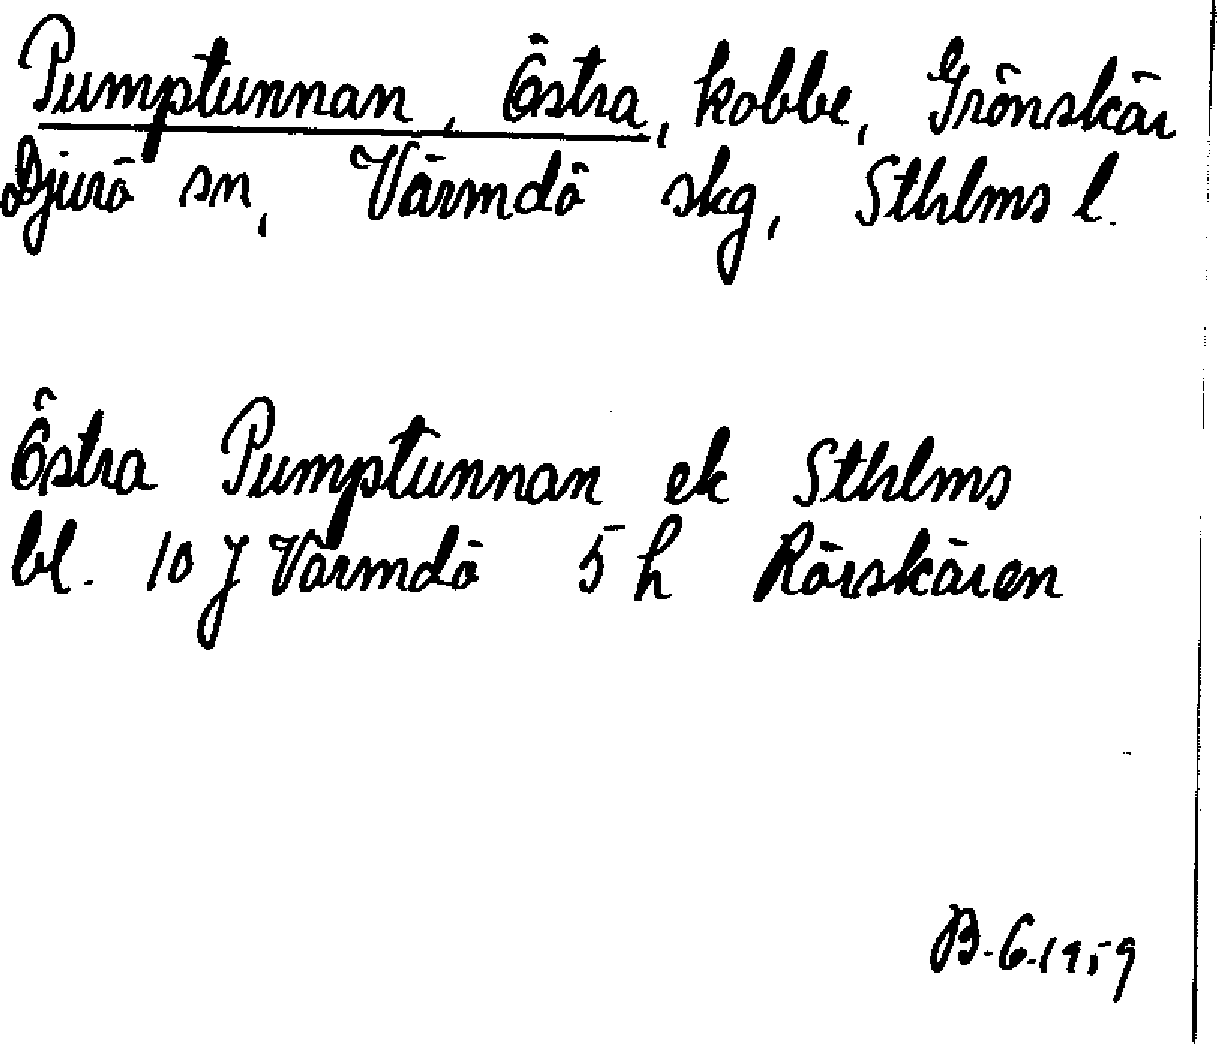 Pumptunnan, Östra, kobbe, Grönskär
Djurö sn, Värmdö skg, Sthlms l.
Östra Pumptunnan ek Sthlms
bl. 10 J Värmdö 5 h Rörskären
B. G. 1959